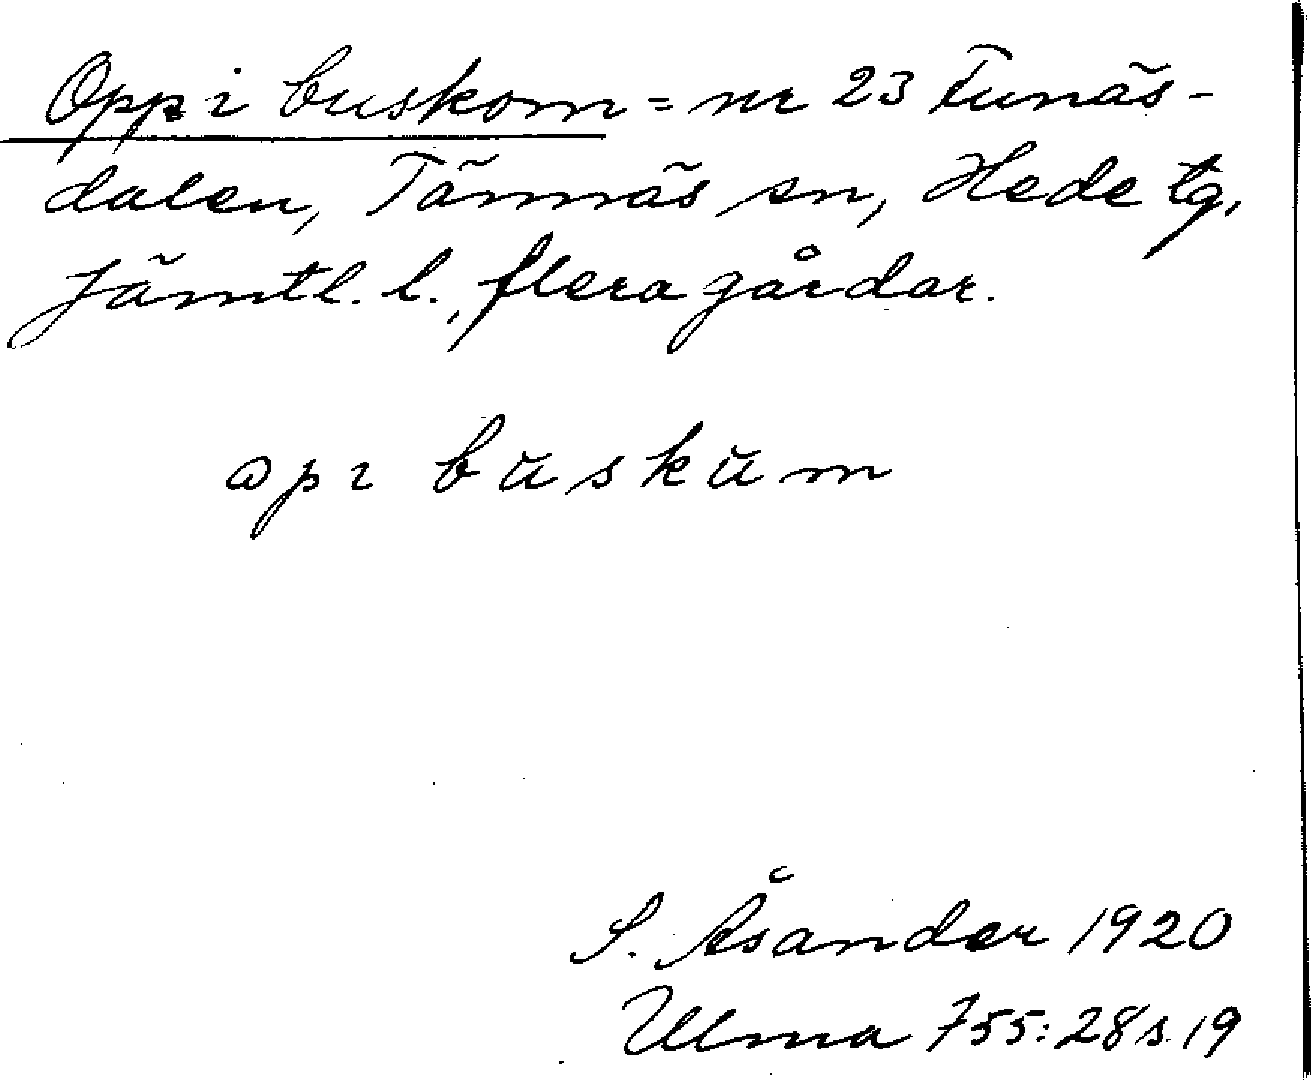 Opp i buskom = nr 23 Funäs-
dalen, Tännäs sn, Hede tg,
Jämtl. l., flera gårdar.
opı bŭskŭm
S. Åsander 1920
Ulma 755:28 s. 19